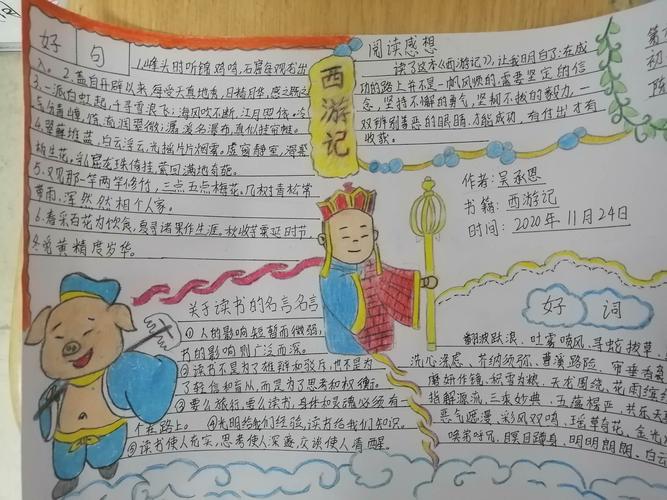 好句
1.峰头时听锦鸡鸣,石窟每观
入。2.盖自开辟以来,每受天真地秀,日精月华,感之既久
3.一派白虹起,千寻雪浪飞;海风吹不断,江月照依。冷
气分青嶂,馀流润翠微;潺湲名瀑布,真似挂帘帷。
4.翠藓堆蓝,白云浮玉,光摇片片烟霞。虚窗静室,滑凳
板生花。乳窟龙珠倚挂,萦回满地奇葩。
5.又见那一竿两竿修竹,三点五点梅花。几树青松常
带雨,浑然相个人家。
6.春采百花为饮食,夏寻诸果作生涯。秋收芋栗延时节,
冬觅黄精度岁华。
西游记
阅读感想
读了这本《西游记》,让我明白了:在成
功的路上并不是一帆风顺的,需要坚定的信
念,坚持不懈的勇气,坚韧不拔的毅力,一
双辨别善恶的眼睛,才能成功,有付出才有
收获。
作者:吴承恩
书籍:西游记
时间:2020年11月24日
第
初
陈
关于读书的名言名言
①人的影响短暂而微弱,
书的影响则广泛而深。
②读书不是为了雄辩和驳斥,也不是为
了轻信和盲从,而是为了思考和权衡。
③要么旅行,要么读书,身体和灵魂必须有一
个在路上。④光明给我们经验,读书给我们知识。
⑤读书使人充实,思考使人深邃,交谈使人清醒。
好词
翻波跃浪、吐雾喷风、寻蛇拔草、
洗心涤虑、芥纳须弥、曹溪路险、
磨砖作镜、积雪为粮、天龙围绕、花雨缤纷
指解源流、三乘妙典、五蕴楞严、
恶气遮漫、彩风双鸣、瑶草奇花、金光
唤弟呼兄、瞑目蹲身、明明朗朗、白云